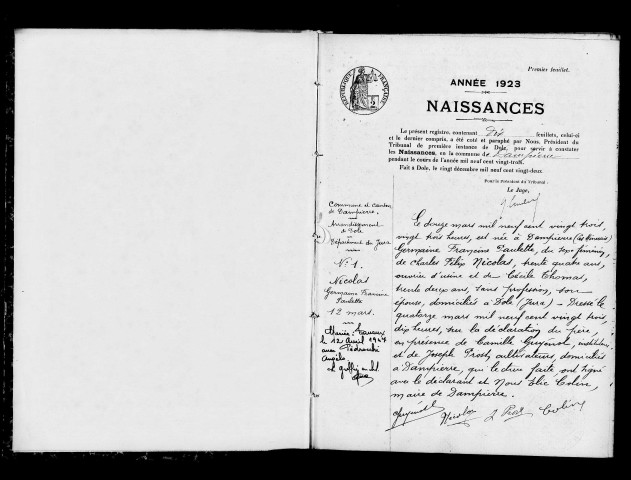 Premier feuillet.
RÉPUBLIQUE FRANÇAISE
2
ANNÉE 1923
NAISSANCES
Le présent registre, contenant Dix feuillets, celui-ci
et le dernier compris, a été coté et paraphé par Nous, Président du
Tribunal de première instance de Dole, pour servir à constater
les Naissances, en la commune de Dampierre
pendant le cours de l'année mil neuf cent vingt-trois.
Fait à Dole, le vingt décembre mil neuf cent vingt-deux.
Pour le Président du Tribunal :
Le Juge,
Commune et Canton
de Dampierre.
Arrondissement
de Dole
Département du Jura
N° 1.
Nicolas
Germaine Francine
Paulette
12 mars.
Mariée à
le 12 Avril 1947
avec
Angelo
Le greffier
Le douze mars mil neuf cent vingt trois,
vingt trois heures, est née à Dampierre
Germaine Francine Paulette, du sexe féminin,
de Charles Félix Nicolas, trente quatre ans,
ouvrier d'usine et de Cécile Thomas,
trente deux ans, sans profession, son
épouse, domiciliés à Dole (Jura) – Dressé le
quatorze mars mil neuf cent vingt trois,
dix heures, sur la déclaration du père,
en présence de Camille Guyénot, instituteur
et de Joseph Prost, cultivateur, domiciliés
à Dampierre, qui, lecture faite, ont signé
avec le déclarant et Nous
maire de Dampierre.
Guyénot Nicolas J. Prost